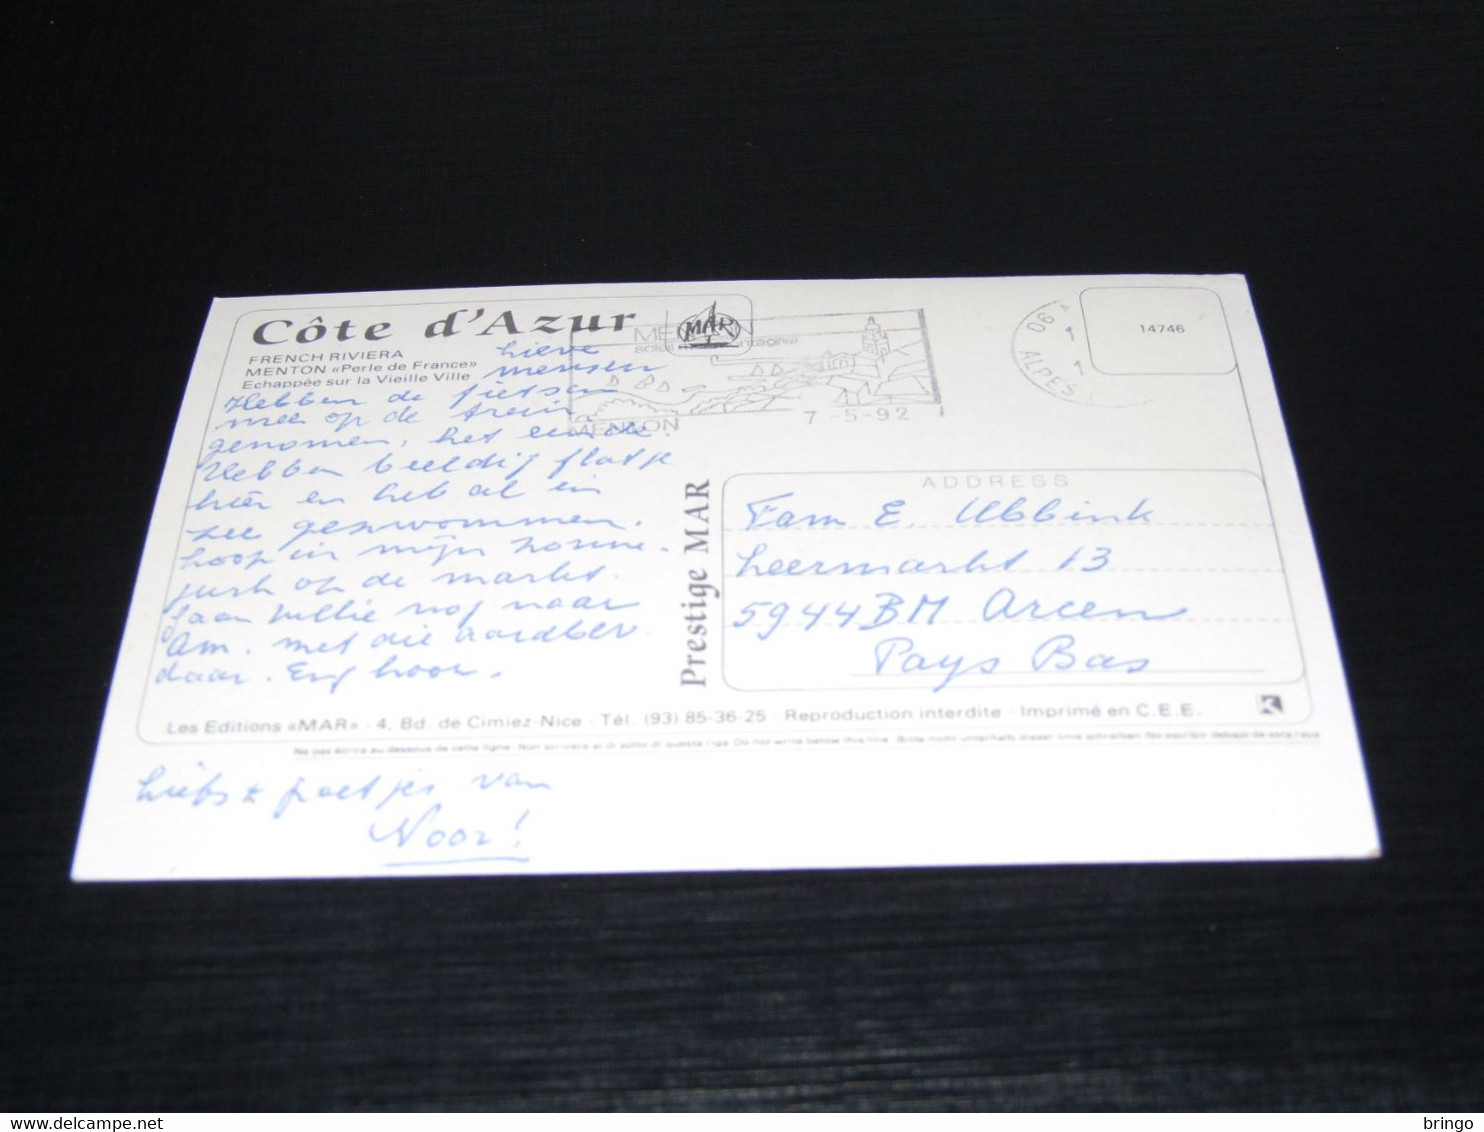 Côte d'Azur
FRENCH RIVIERA
MENTON «Perle de France»
Echappée sur la Vieille Ville
lieve
mensen
Hebben de fietsen
mee op de trein
genomen, het einde.
Hebben beeldig flatje
hier en heb al in
zee gezwommen.
hoop in mijn
op de markt.
Gaan jullie nog naar
Am. met die aardbev
daar. Erg hoor.
Les Editions «MAR» - 4, Bd. de Cimiez-Nice - Tél. (93) 85-36-25 - Reproduction interdite - Imprimé en C.E.E.
Ne pas écrire au-dessous de cette ligne - Non scrivere al di sotto di questa riga - Do not write below this line - Bitte nicht unterhalb dieser linie schreiben - No escribir debajo de esta raya
liefs + poetjes van
Noor!
Prestige MAR
MAR
MENTON
soleil
MENTON
7 -5-92
06
ALPES
14746
ADDRESS
Fam E. Ubbink
Leermarkt 13
5944 BM Arcen
Pays Bas
© delcampe.net
bringo